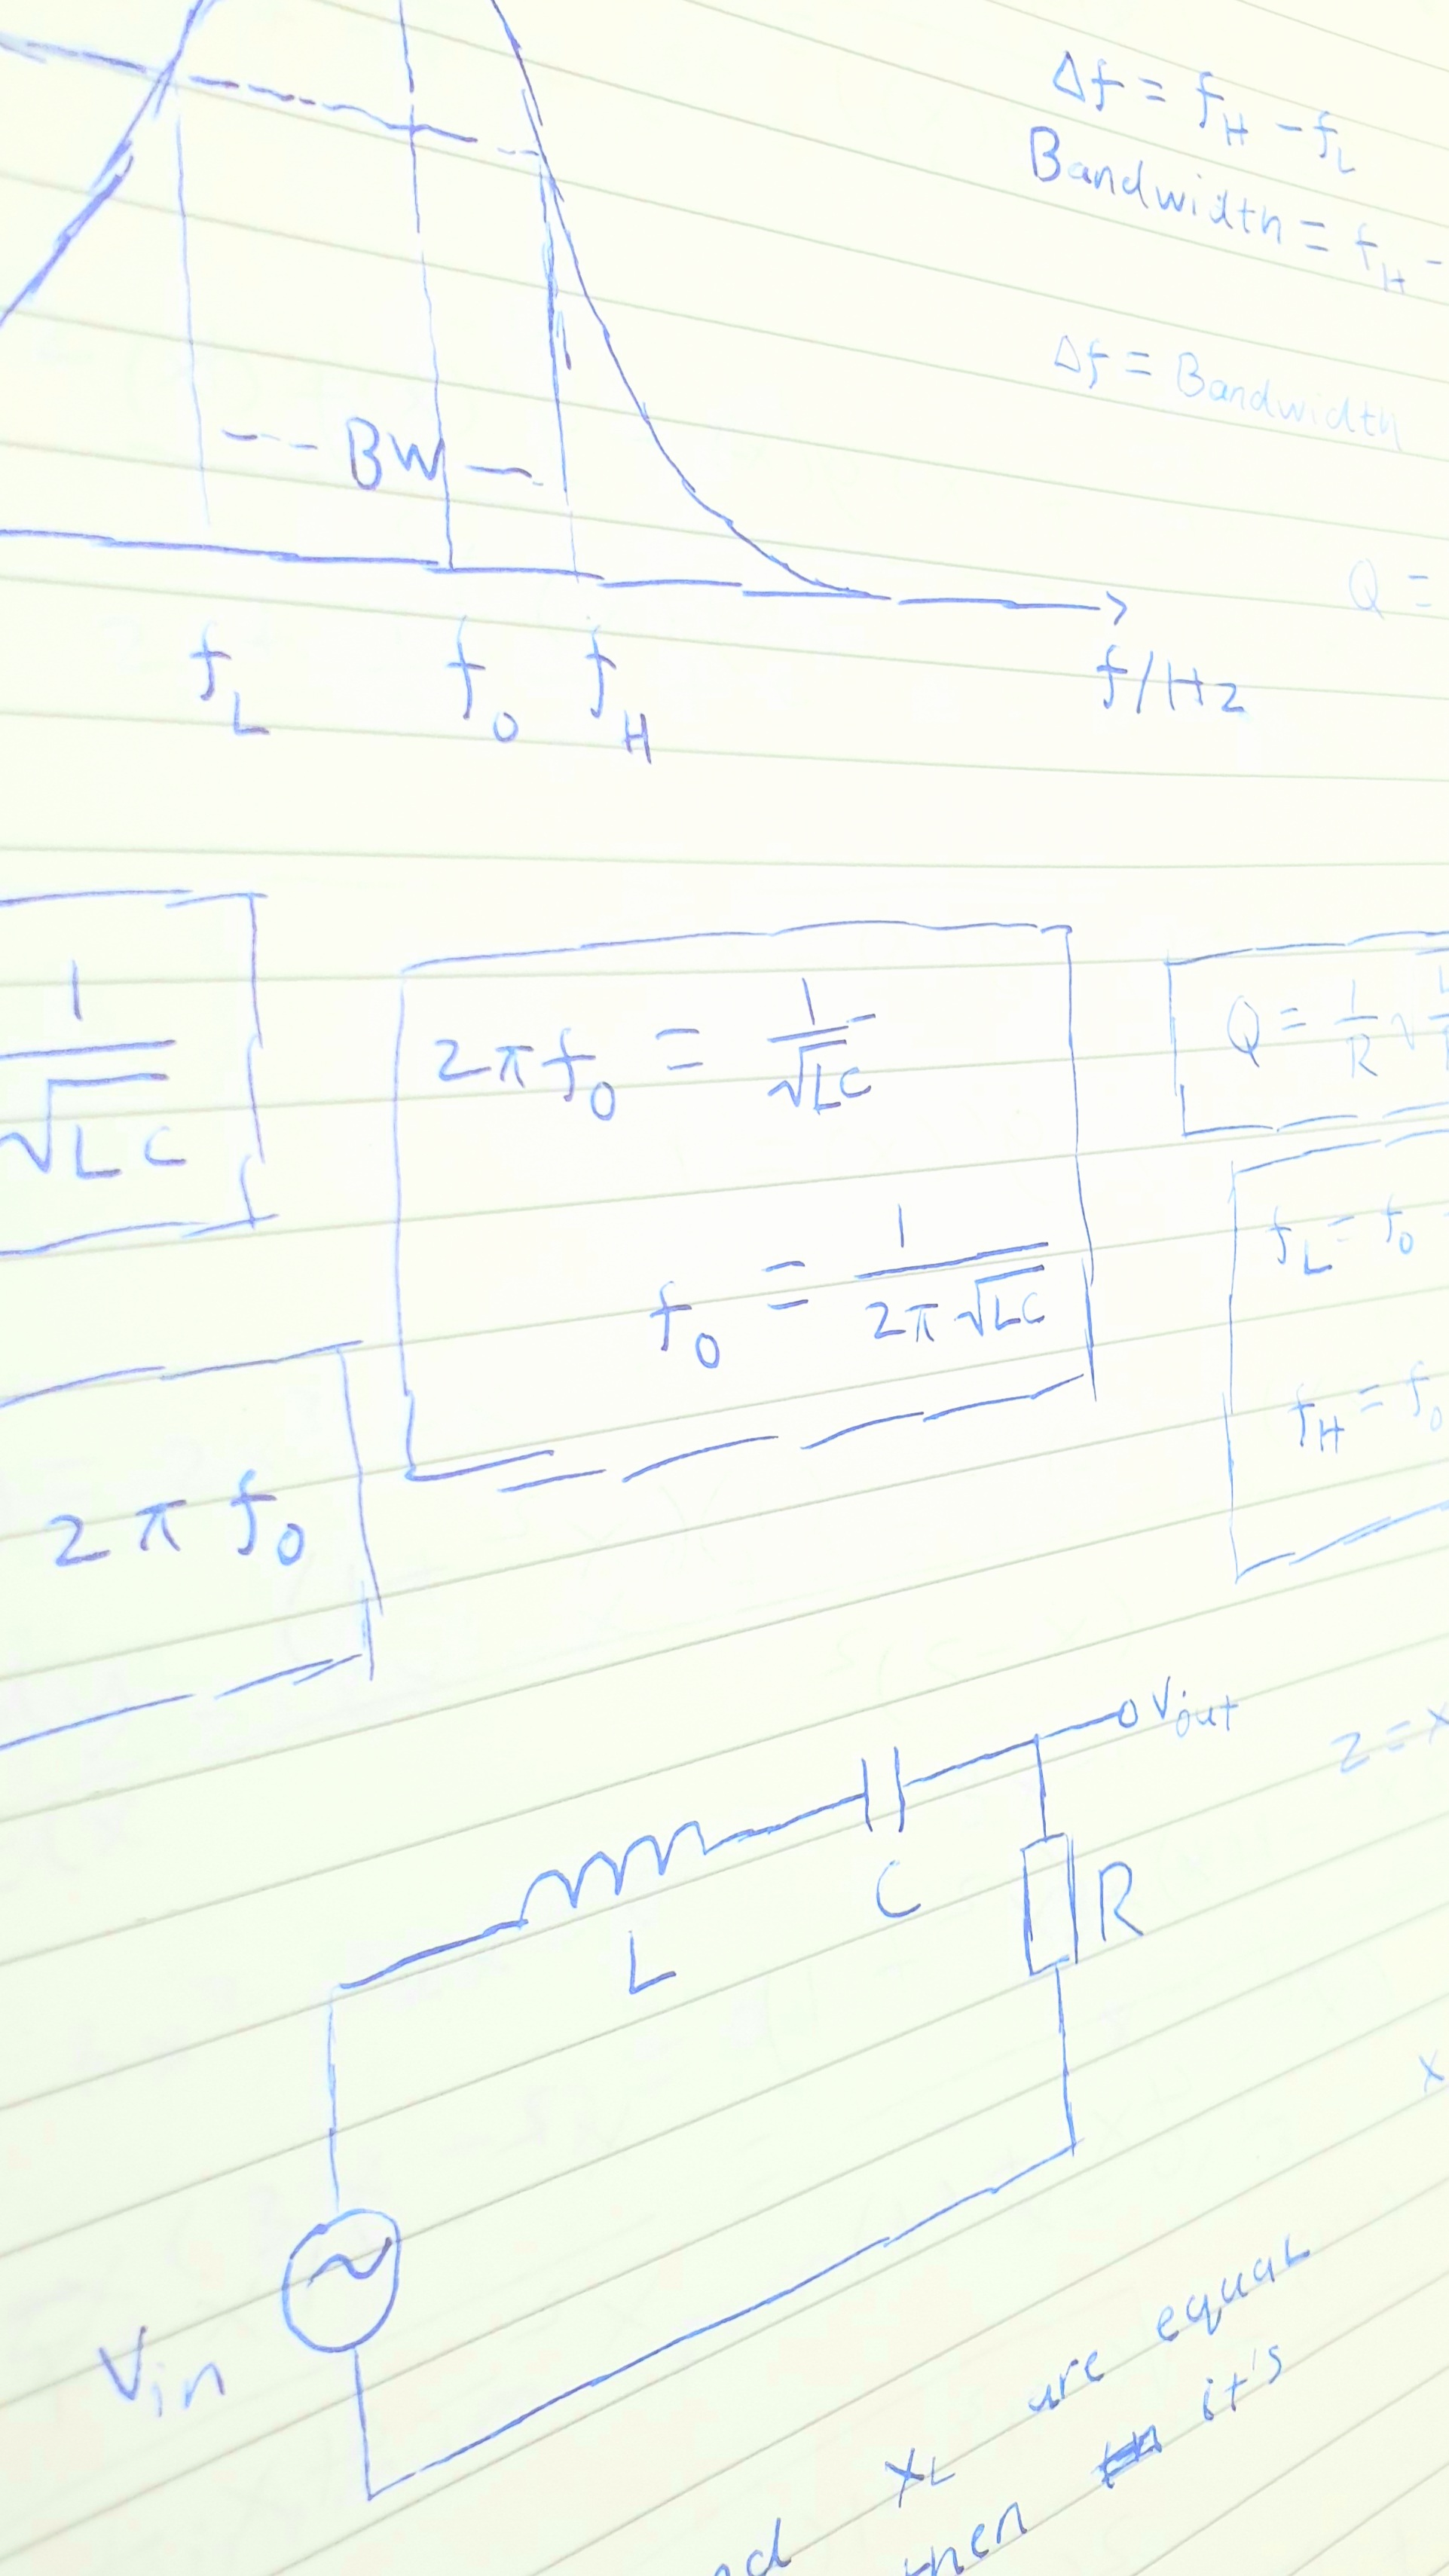 Δf = f_H - f_L
Bandwidth = f_H -
Δf = Bandwidth
-- BW --
Q =
f_L f_0 f_H
f/Hz
1/√LC
2π f_0 = 1/√LC
f_0 = 1/2π√LC
Q = 1/R √
f_L = f_0
f_H = f_0
2π f_0
V_out
Z = X
C
R
L
X
V_in
X_L are equal
then it's